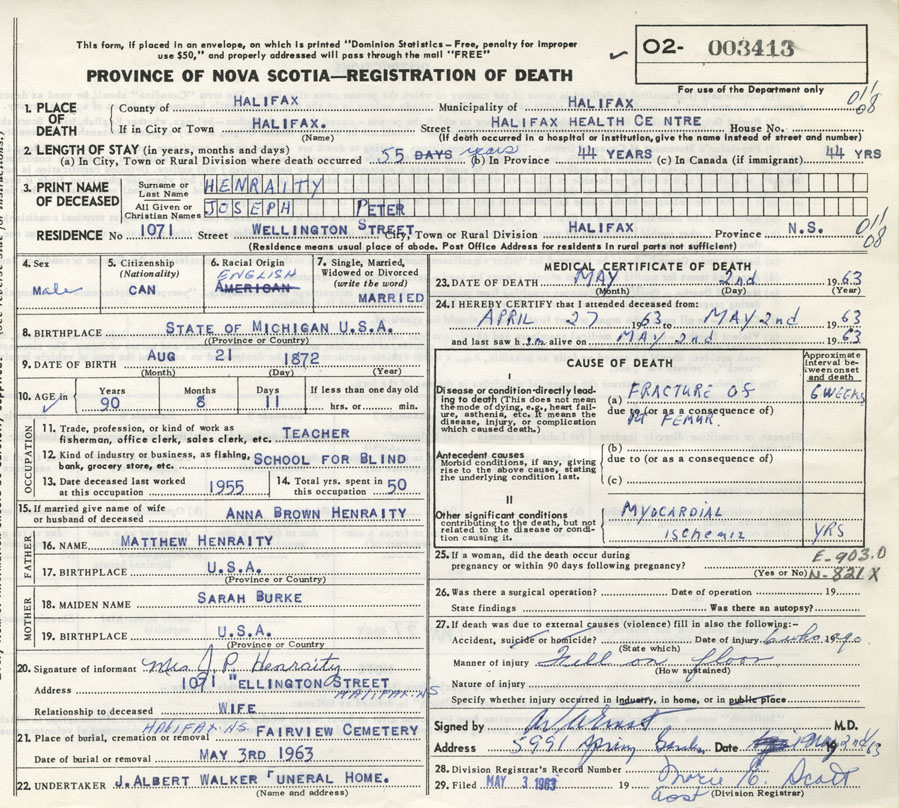 This form, if placed in an envelope, on which is printed "Dominion Statistics – Free, penalty for improper
use $50," and properly addressed will pass through the mail "FREE"
02- 003413
PROVINCE OF NOVA SCOTIA—REGISTRATION OF DEATH
For use of the Department only
1. PLACE OF DEATH
County of HALIFAX Municipality of HALIFAX
011/08
If in City or Town HALIFAX. Street HALIFAX HEALTH CE NTRE House No.
(Name) (If death occurred in a hospital or institution, give the name instead of street and number)
2. LENGTH OF STAY (in years, months and days)
(a) In City, Town or Rural Division where death occurred 55 DAYS years (b) In Province 44 YEARS (c) In Canada (if immigrant) 44 YRS
3. PRINT NAME OF DECEASED
Surname or Last Name HENRAITY
All Given or Christian Names JOSEPH PETER
RESIDENCE No 1071 Street WELLINGTON STREET City, Town or Rural Division HALIFAX Province N.S.
011/08
(Residence means usual place of abode. Post Office Address for residents in rural parts not sufficient)
4. Sex
Male
5. Citizenship
(Nationality)
CAN
6. Racial Origin
ENGLISH
AMERICAN
7. Single, Married,
Widowed or Divorced
(write the word)
MARRIED
8. BIRTHPLACE STATE OF MICHIGAN U.S.A.
(Province or Country)
9. DATE OF BIRTH AUG 21 1872
(Month) (Day) (Year)
10. AGE in Years 90 Months 8 Days 11 If less than one day old
hrs. or min.
OCCUPATION
11. Trade, profession, or kind of work as
fisherman, office clerk, sales clerk, etc. TEACHER
12. Kind of industry or business, as fishing,
bank, grocery store, etc. SCHOOL FOR BLIND
13. Date deceased last worked
at this occupation 1955
14. Total yrs. spent in
this occupation 50
15. If married give name of wife
or husband of deceased ANNA BROWN HENRAITY
FATHER
16. NAME MATTHEW HENRAITY
17. BIRTHPLACE U.S.A.
(Province or Country)
MOTHER
18. MAIDEN NAME SARAH BURKE
19. BIRTHPLACE U.S.A.
(Province or Country)
20. Signature of informant Mrs J. P. Henraity
Address 1071 "ELLINGTON STREET
HALIFAX NS
Relationship to deceased WIFE
21. Place of burial, cremation or removal HALIFAX NS FAIRVIEW CEMETERY
Date of burial or removal MAY 3RD 1963
22. UNDERTAKER J.ALBERT WALKER FUNERAL HOME.
(Name and address)
MEDICAL CERTIFICATE OF DEATH
23. DATE OF DEATH MAY 2nd 1963
(Month) (Day) (Year)
24. I HEREBY CERTIFY that I attended deceased from:
APRIL 27 1963 to MAY 2nd 1963
and last saw him alive on MAY 2nd 1963
CAUSE OF DEATH
Approximate
interval be-
tween onset
and death
I
Disease or condition directly lead-
ing to death (This does not mean
the mode of dying, e.g., heart fail-
ure, asthenia, etc. It means the
disease, injury, or complication
which caused death.)
(a) FRACTURE OF 6 WEEKS
due to (or as a consequence of)
RT FEMUR.
Antecedent causes
Morbid conditions, if any, giving
rise to the above cause, stating
the underlying condition last.
(b)
due to (or as a consequence of)
(c)
II
Other significant conditions
contributing to the death, but not
related to the disease or condi-
tion causing it.
MYOCARDIAL
ischemia YRS
25. If a woman, did the death occur during
pregnancy or within 90 days following pregnancy?
(Yes or No)
E-903.0
N-821X
26. Was there a surgical operation? Date of operation 19
State findings Was there an autopsy?
27. If death was due to external causes (violence) fill in also the following:-
Accident, suicide or homicide? Date of injury 6 wks ago 19
(State which)
Manner of injury Fell on floor
(How sustained)
Nature of injury
Specify whether injury occurred in industry, in home, or in public place
Signed by M.D.
Address 5991 Spring Garden Date May 2nd 1963
28. Division Registrar's Record Number
29. Filed MAY 3 1963 19 Marie E. Scott
(Division Registrar)